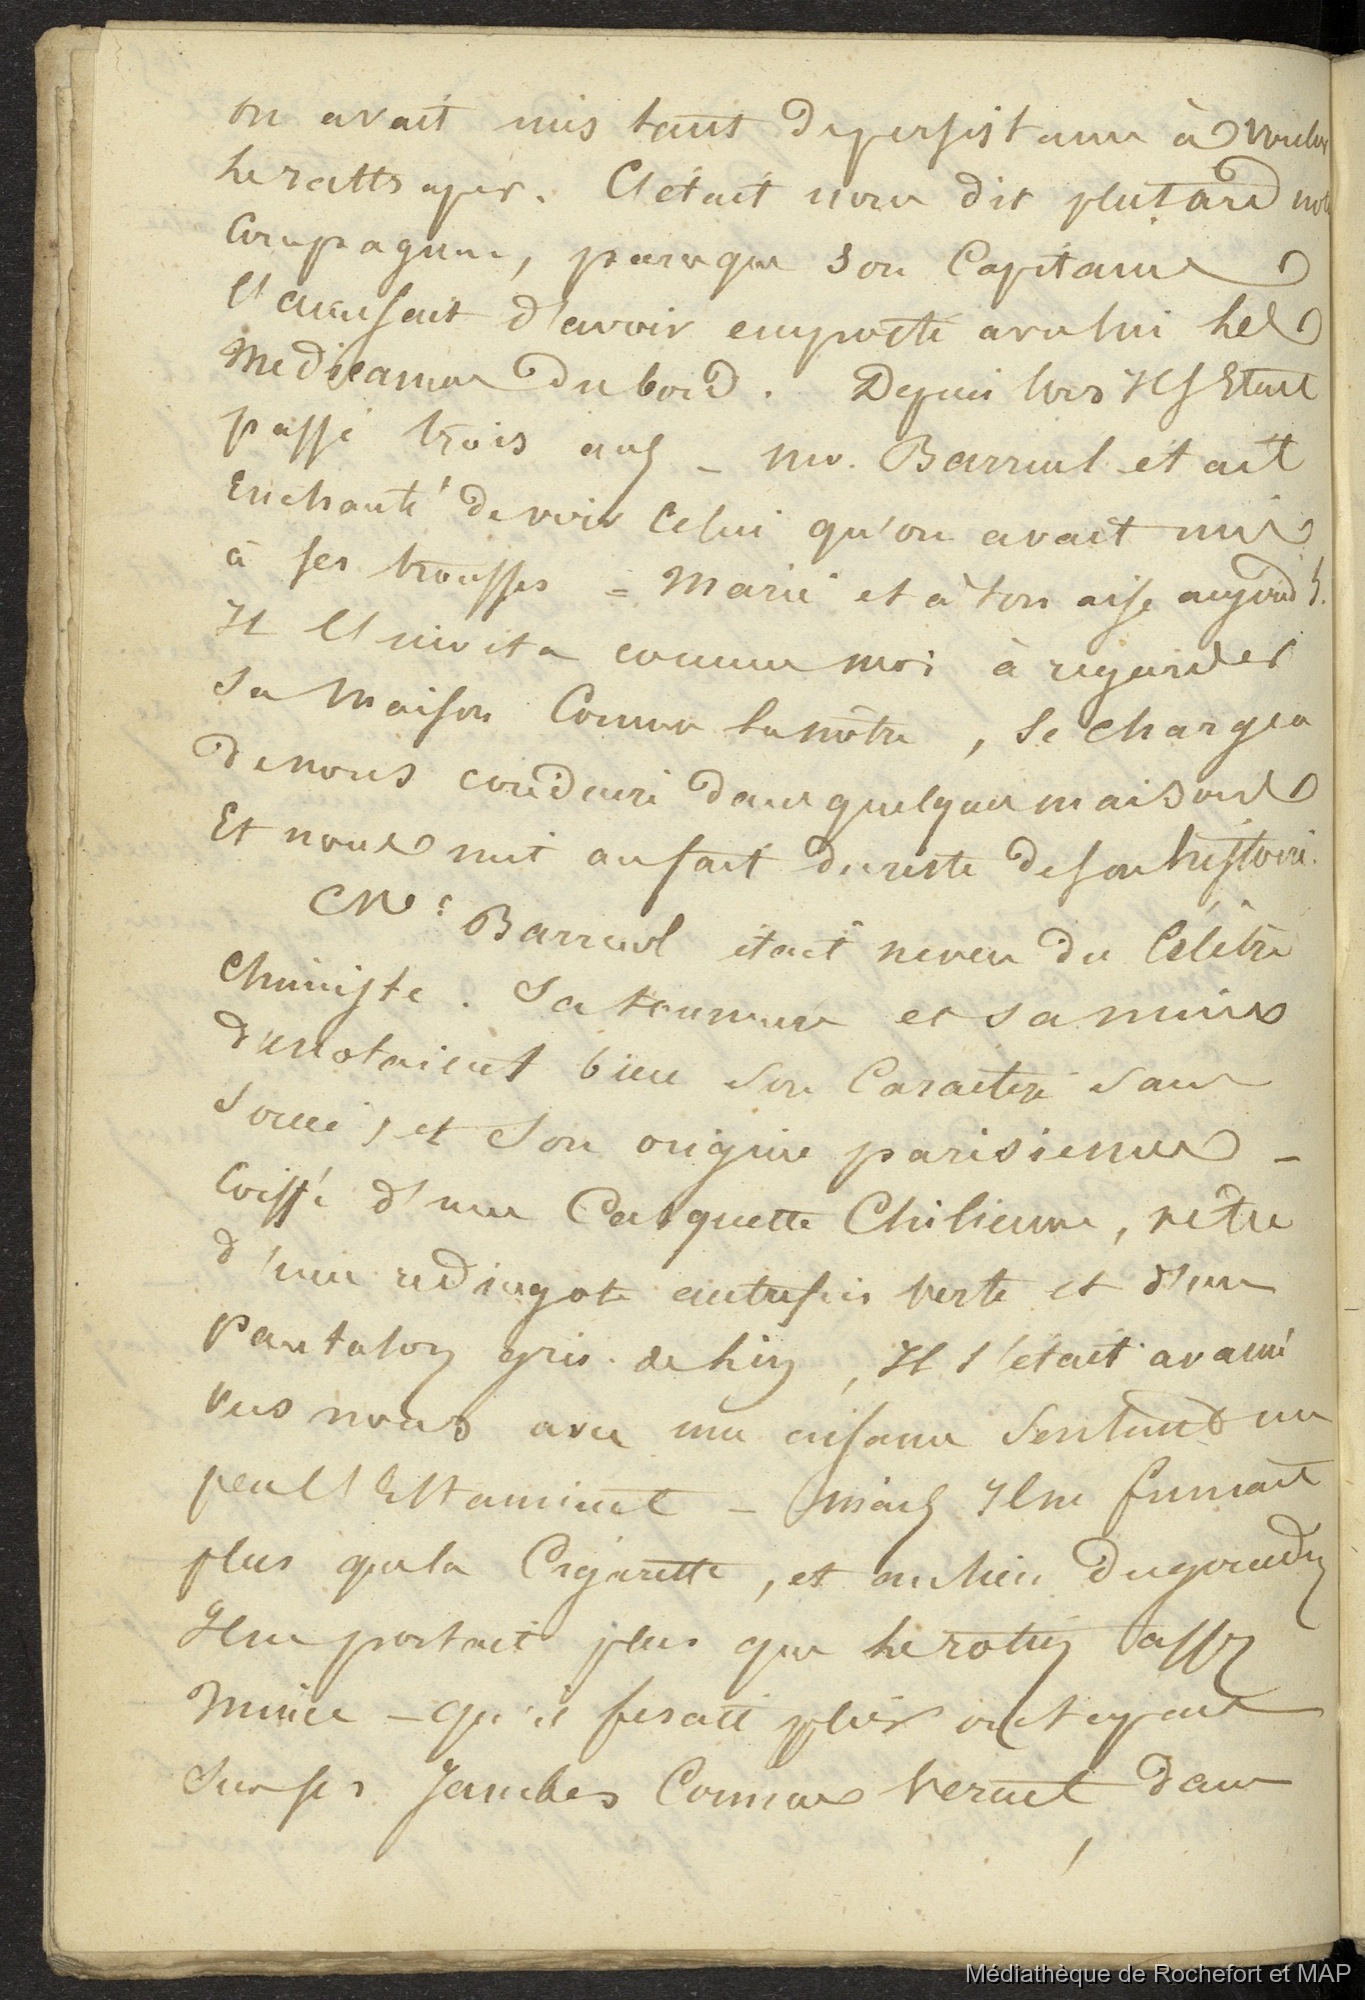 on avait mis tant de persistance à vouloir
le rattraper. C'était nous dit plutard notre
Compagnon, parceque son Capitaine
l'accusait d'avoir emporté avec lui les
Medicamens du bord. Depuis lors Il s'Etait
passé trois ans _ mr. Barruel était
Enchanté de voir celui qu'on avait mis
à ses trousses = Marié et à son aise aujourd'h.
Il l'invita comme moi à regarder
sa maison Comme la nôtre, se chargea
de nous conduire dans quelques maisons
Et nous mit au fait du reste de son histoire.
Mr: Barruel était neveu du Célèbre
chimiste. Sa tournure et sa mine
dénotaient bien son Caractère sans
souci, et son origine parisienne _
Coiffé d'une Casquette Chilienne, vêtu
d'une redingote autrefois verte et d'un
Pantalon gris de lin, Il s'était avancé
vers nous avec une aisance sentant un
peu l'Estaminet _ mais Il ne fumait
plus que la Cigarette, et au lieu du gourdin
Il ne portait plus que le rotin assez
mince _ qu'il fesait plier
sur ses Jambes Comme Vernet, dans
Médiathèque de Rochefort et MAP